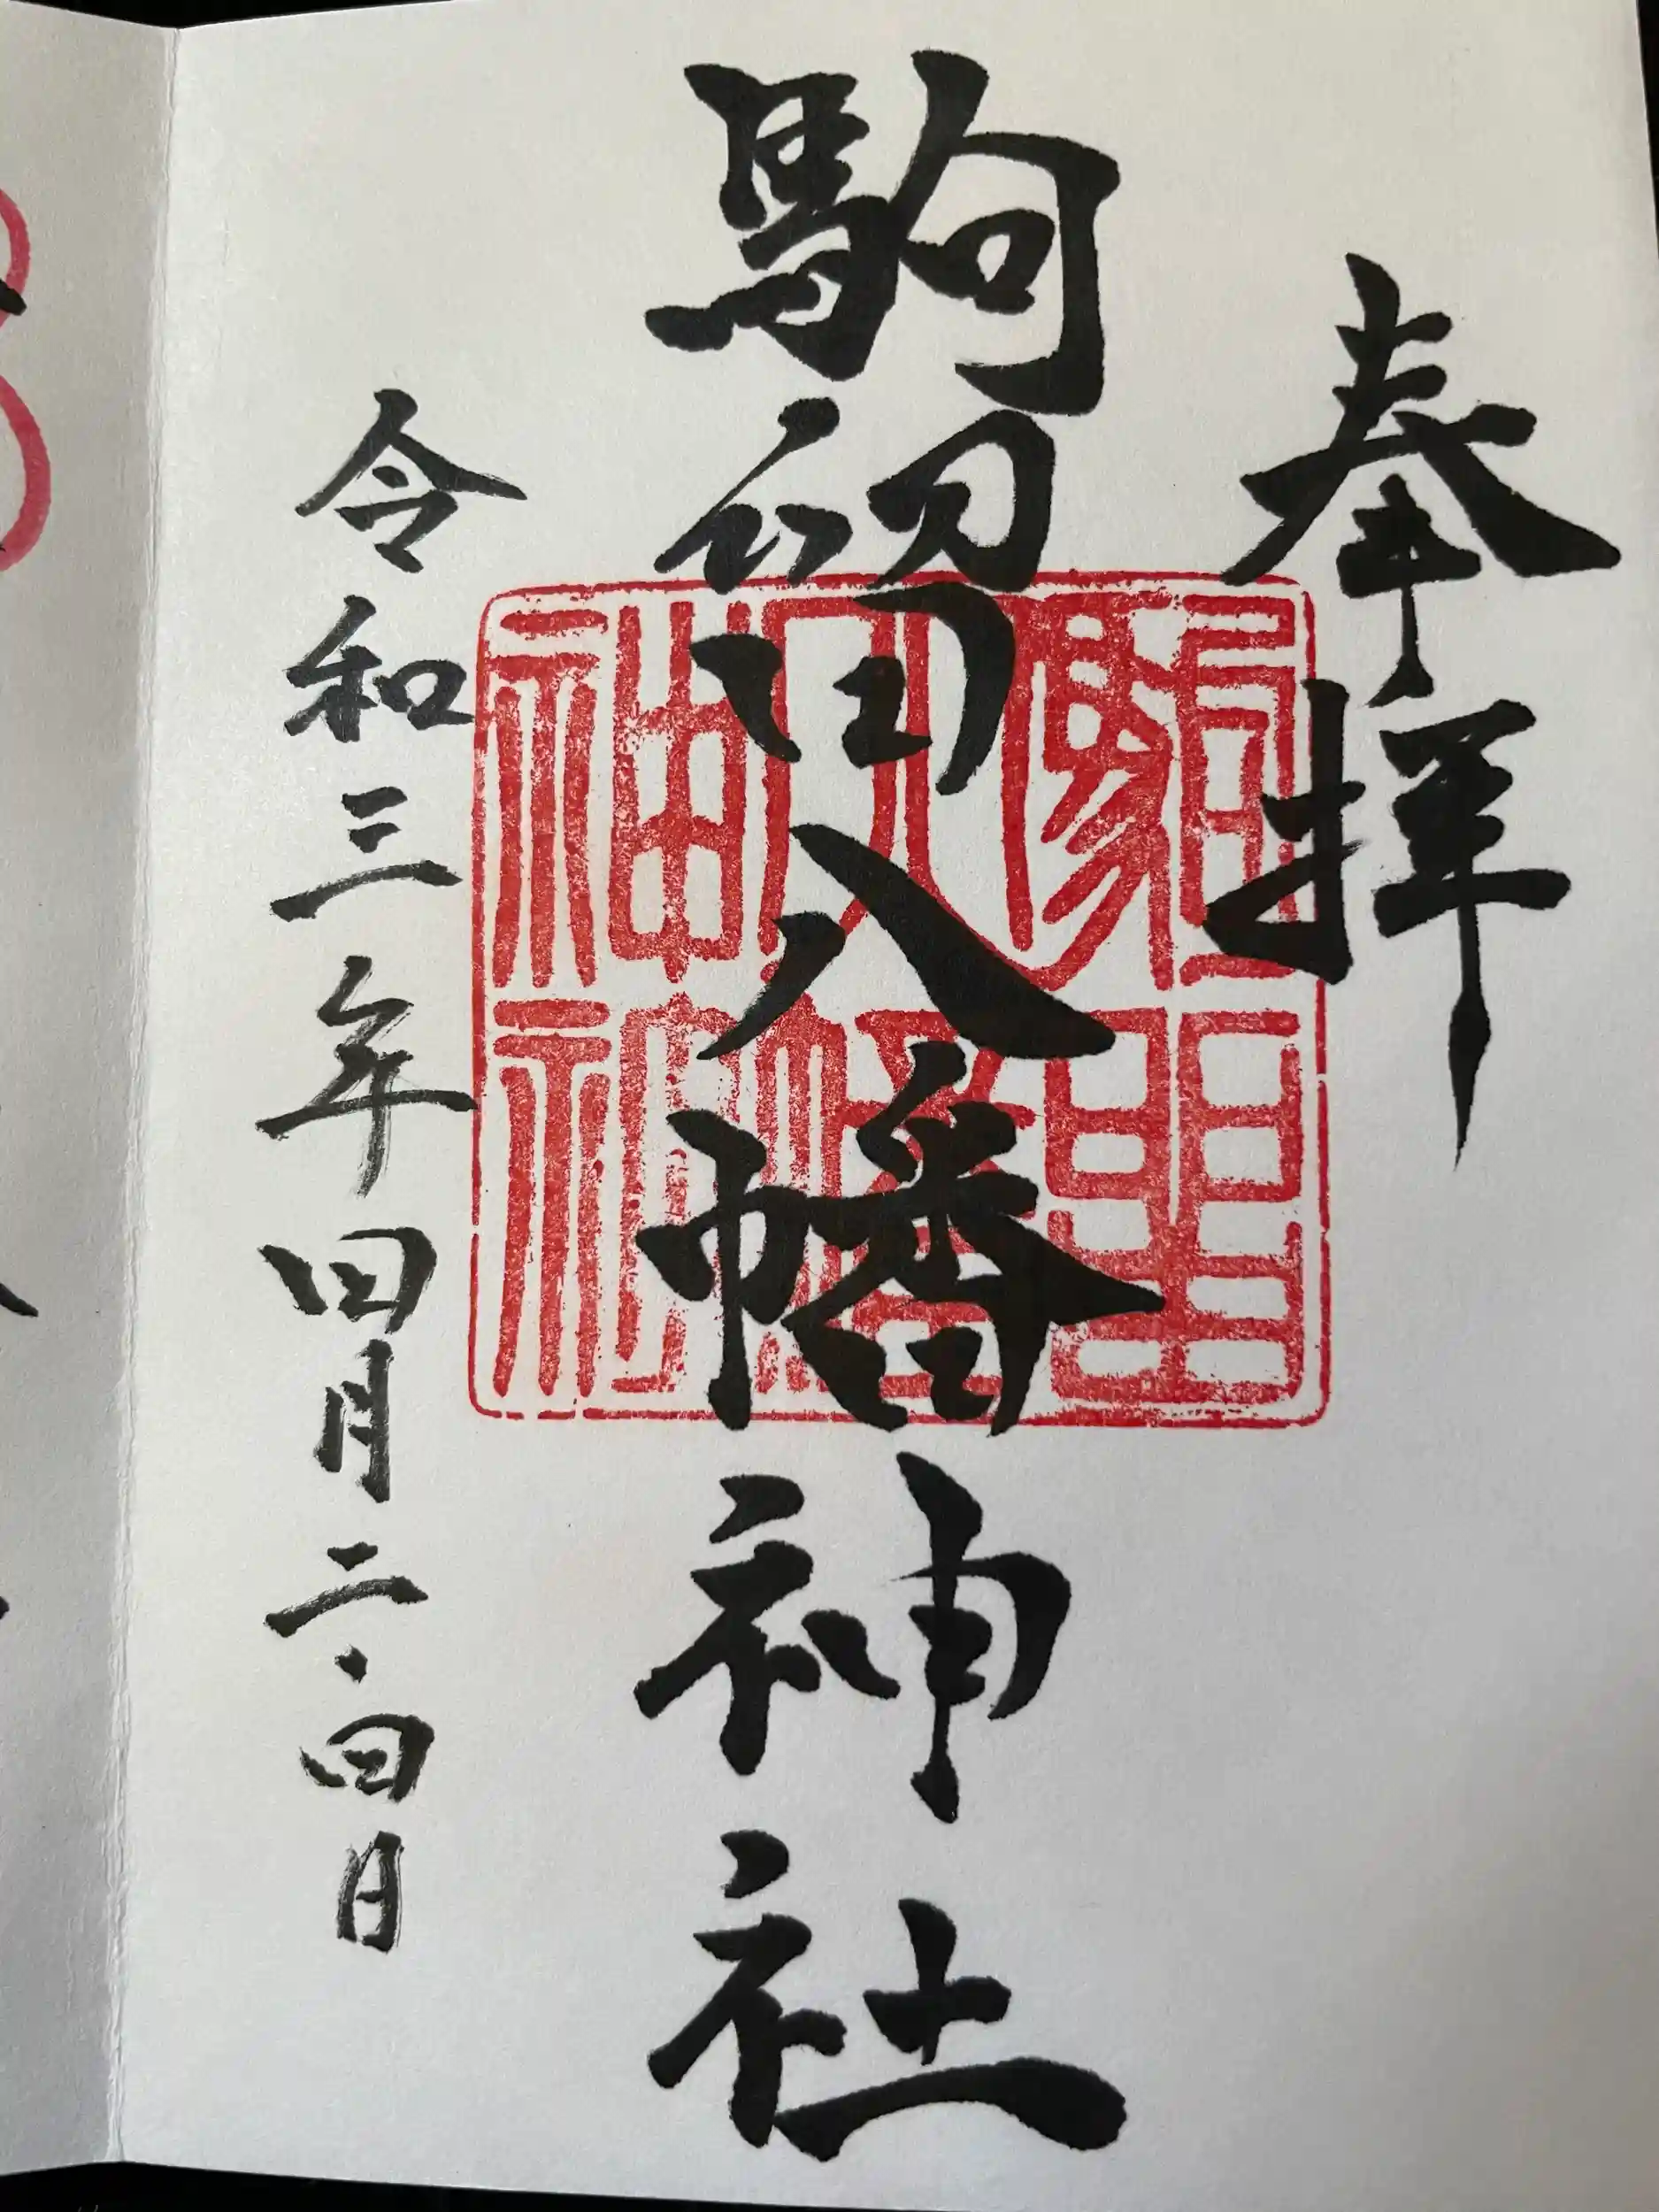 奉拝
駒留八幡神社
令和三年四月二・四日
駒留
八幡
神社